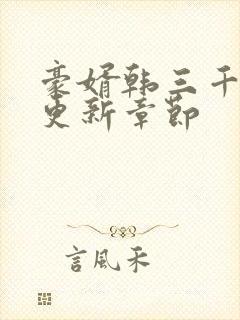 豪婿韩三千
更新章节
言風禾